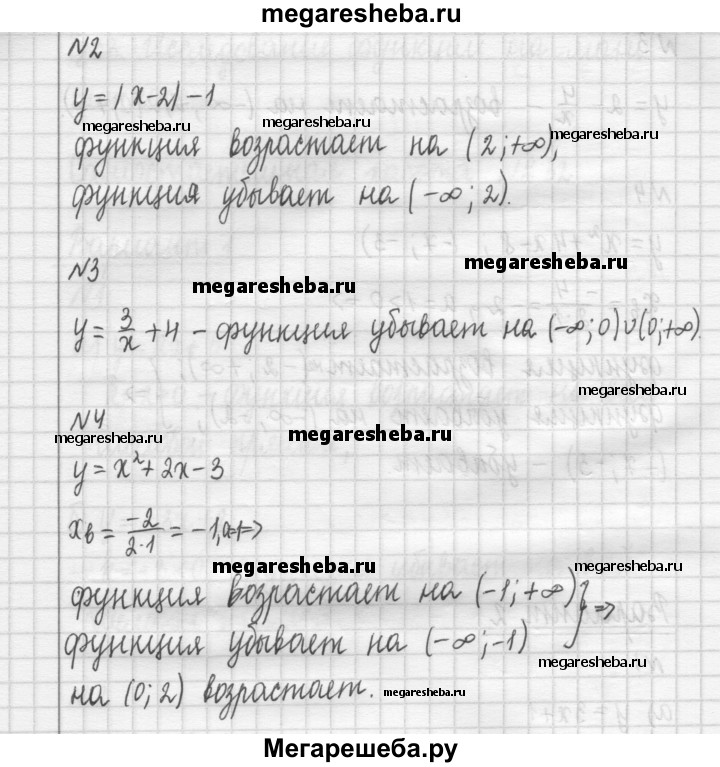 megaresheba.ru
N2
y=|x-2|-1
megaresheba.ru megaresheba.ru megaresheba.ru
функция возрастает на (2;+∞),
функция убывает на (-∞; 2).
megaresheba.ru
N3
megaresheba.ru
y = 3/x + 4 - функция убывает на (-∞;0)∪(0;+∞).
megaresheba.ru
N4
megaresheba.ru
megaresheba.ru
y = x²+2x-3
xв = -2/2·1 = -1, a=1=>
megaresheba.ru
megaresheba.ru
функция возрастает на (-1;+∞) } =>
функция убывает на (-∞;-1)
megaresheba.ru
на (0; 2) возрастает.
megaresheba.ru
Мегарешеба.ру